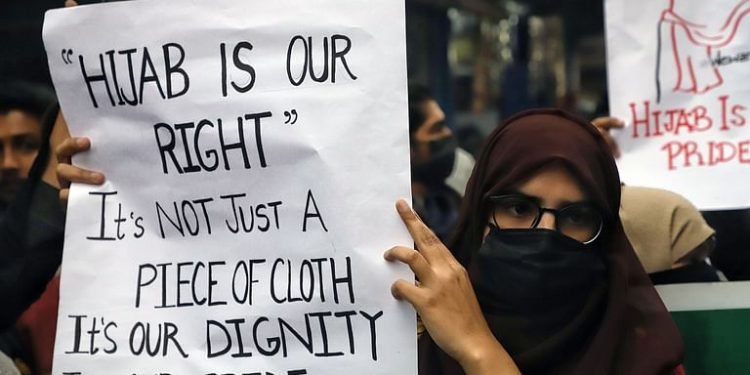 "HIJAB IS OUR
RIGHT"
It's NOT JUST A
PIECE OF CLOTH
It's OUR DIGNITY
HIJAB IS
PRIDE